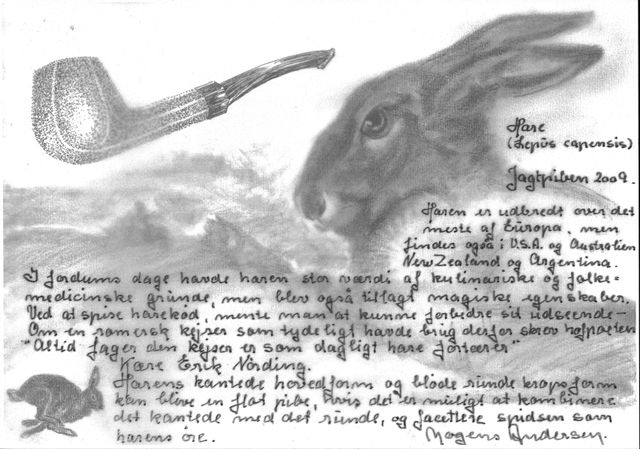 Hare
(Lepus capensis)
Jagtpiben 2009.
Haren er udbredt over det
meste af Europa, men
findes også i U.S.A. og Australien
New Zealand og Argentina.
I fordums dage havde haren stor værdi af kulinariske og folke=
medicinske grunde, men blev også tillagt magiske egenskaber.
Ved at spise harekød, mente man at kunne forbedre sit udseende—
Om en romersk kejser som tydeligt havde brug derfor skrev hofpoeten
"Altid fager den kejser er som dagligt hare fortærer"
Kære Erik Nörding.
Harens kantede hovedform og bløde runde kropsform
kan blive en flot pibe, hvis det er muligt at kombinere
det kantede med det runde, og facettere spidsen som
harens øre.
Mogens Andersen.